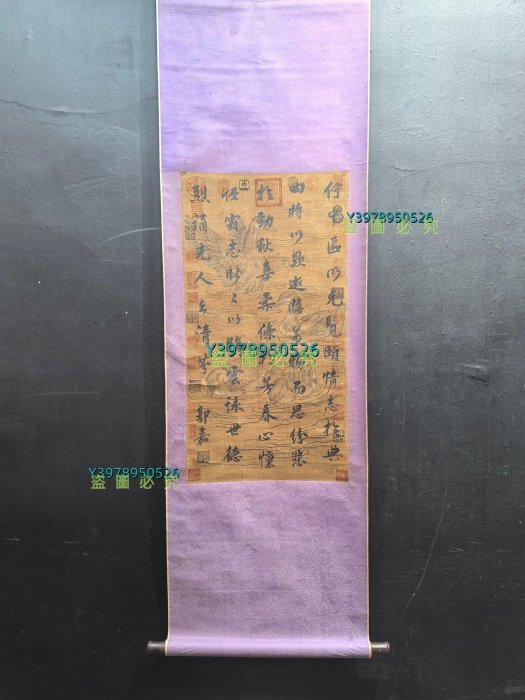 佇中區以玄覽頤情志於典
時以歎逝瞻萬物而思紛悲
於勁秋喜柔條於芳春心懍
懷霜志眇眇以臨雲詠世德
烈誦先人之清芬
郭嘉
Y3978950526
盜圖必究
Y3978950526
盜圖必究
Y3978950526
盜圖必究